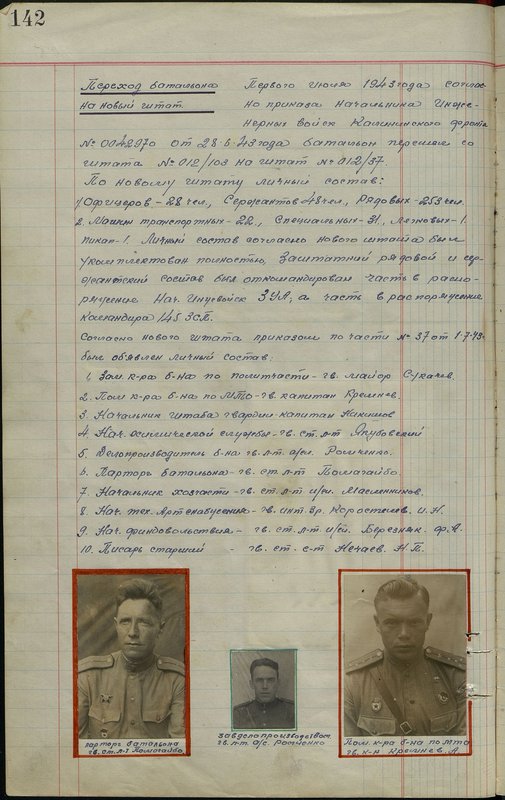 142
Переход батальона
на новый штат.
Первого июля 1943 года соглас-
но приказа Начальника Инже-
нерных войск Калининского фронта
№ 0042970 от 28.6.43 года батальон перешел со
штата № 012/103 на штат № 012/37.
По новому штату личный состав:
1. Офицеров - 28 чел., Сержантов 48 чел., Рядовых - 253 чел.
2. Машин транспортных - 22, Специальных - 31, Легковых - 1.
пикап - 1. Личный состав согласно нового штата был
укомплектован полностью, Заштатный рядовой и сер-
жантский состав был откомандирован часть в распо-
ряжение Нач. Инжвойск 3 УА, а часть в распоряжение
командира 145 ЗСП.
Согласно нового штата приказом по части № 37 от 1-7-43г.
был объявлен личный состав:
1. Зам. к-ра б-на по политчасти - гв. майор Сукачев.
2. Пом к-ра б-на по МТО - гв. капитан Кремнев.
3. Начальник штаба гвардии - капитан Никишов
4. Нач. химической службы - гв. ст. л-т Якубовский
5. Делопроизводитель б-на гв. л-т а/сл. Романенко.
6. Парторг батальона - гв. ст. л-т Помагайбо.
7. Начальник хозчасти - гв. ст. л-т и/сл. Масленников.
8. Нач. тех. Артснабжения - гв. инт. 3р. Коростелев. И.Н.
9. Нач. финдовольствия - гв. ст. л-т и/сл. Березняк. Ф.А.
10. Писарь старший - гв. ст. с-т Нечаев. Н.П.
парторг батальона
гв. ст. л-т Помагайбо
завделопроизводством
гв. л-т а/с.
Пом. к-ра б-на по МТО
гв. к-н Кремнев. А.